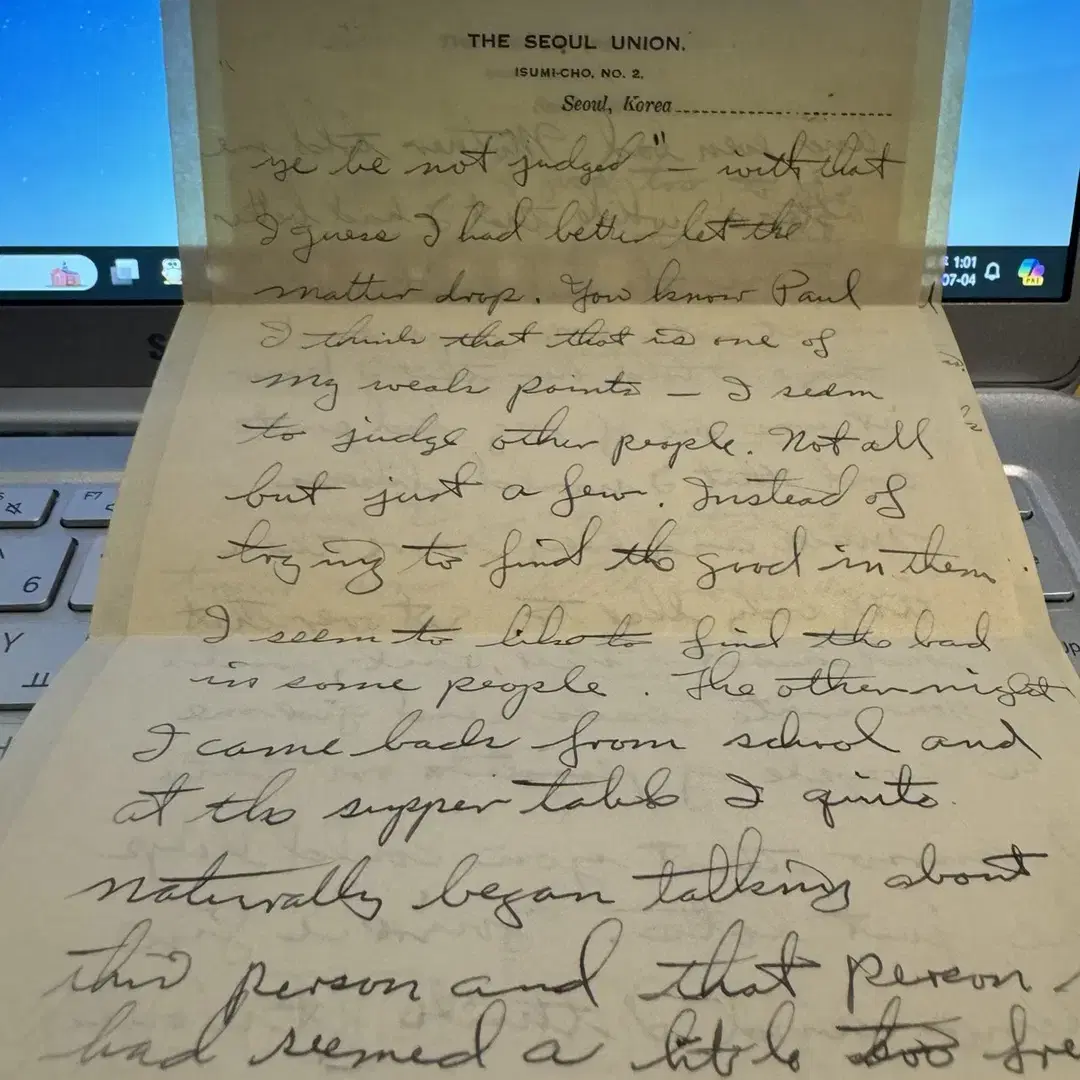 THE SEOUL UNION.
ISUMI-CHO, NO. 2,
Seoul, Korea
ye be not judged" – with that
I guess I had better let the
matter drop. You know Paul
I think that that is one of
my weak points – I seem
to judge other people. Not all
but just a few. Instead of
trying to find the good in them
I seem to like to find the bad
in some people. The other night
I came back from school and
at the supper table I quite
naturally began talking about
this person and that person
had seemed a little too
1:01
07-04
F7
6
Y
ㅛ